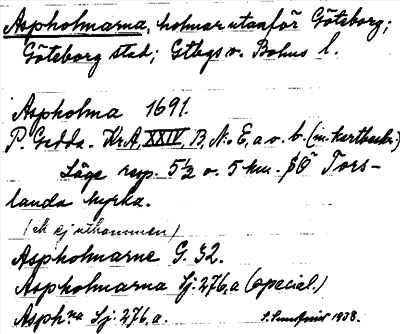 Aspholmarna, holmar utanför Göteborg;
Göteborg stad; Gtbgs o. Bohus l.
Aspholma 1691.
P. Gedda. KrA, XXIV, B, N:o E, a o. b. (
Läge resp. 5½ o. 5 km. SÖ Tors-
landa kyrka.
(ej utkommen)
Aspholmarne G. 32.
Aspholmarna Sj: 276, a (special.)
Asph:na Sj: 276, a. 1938.